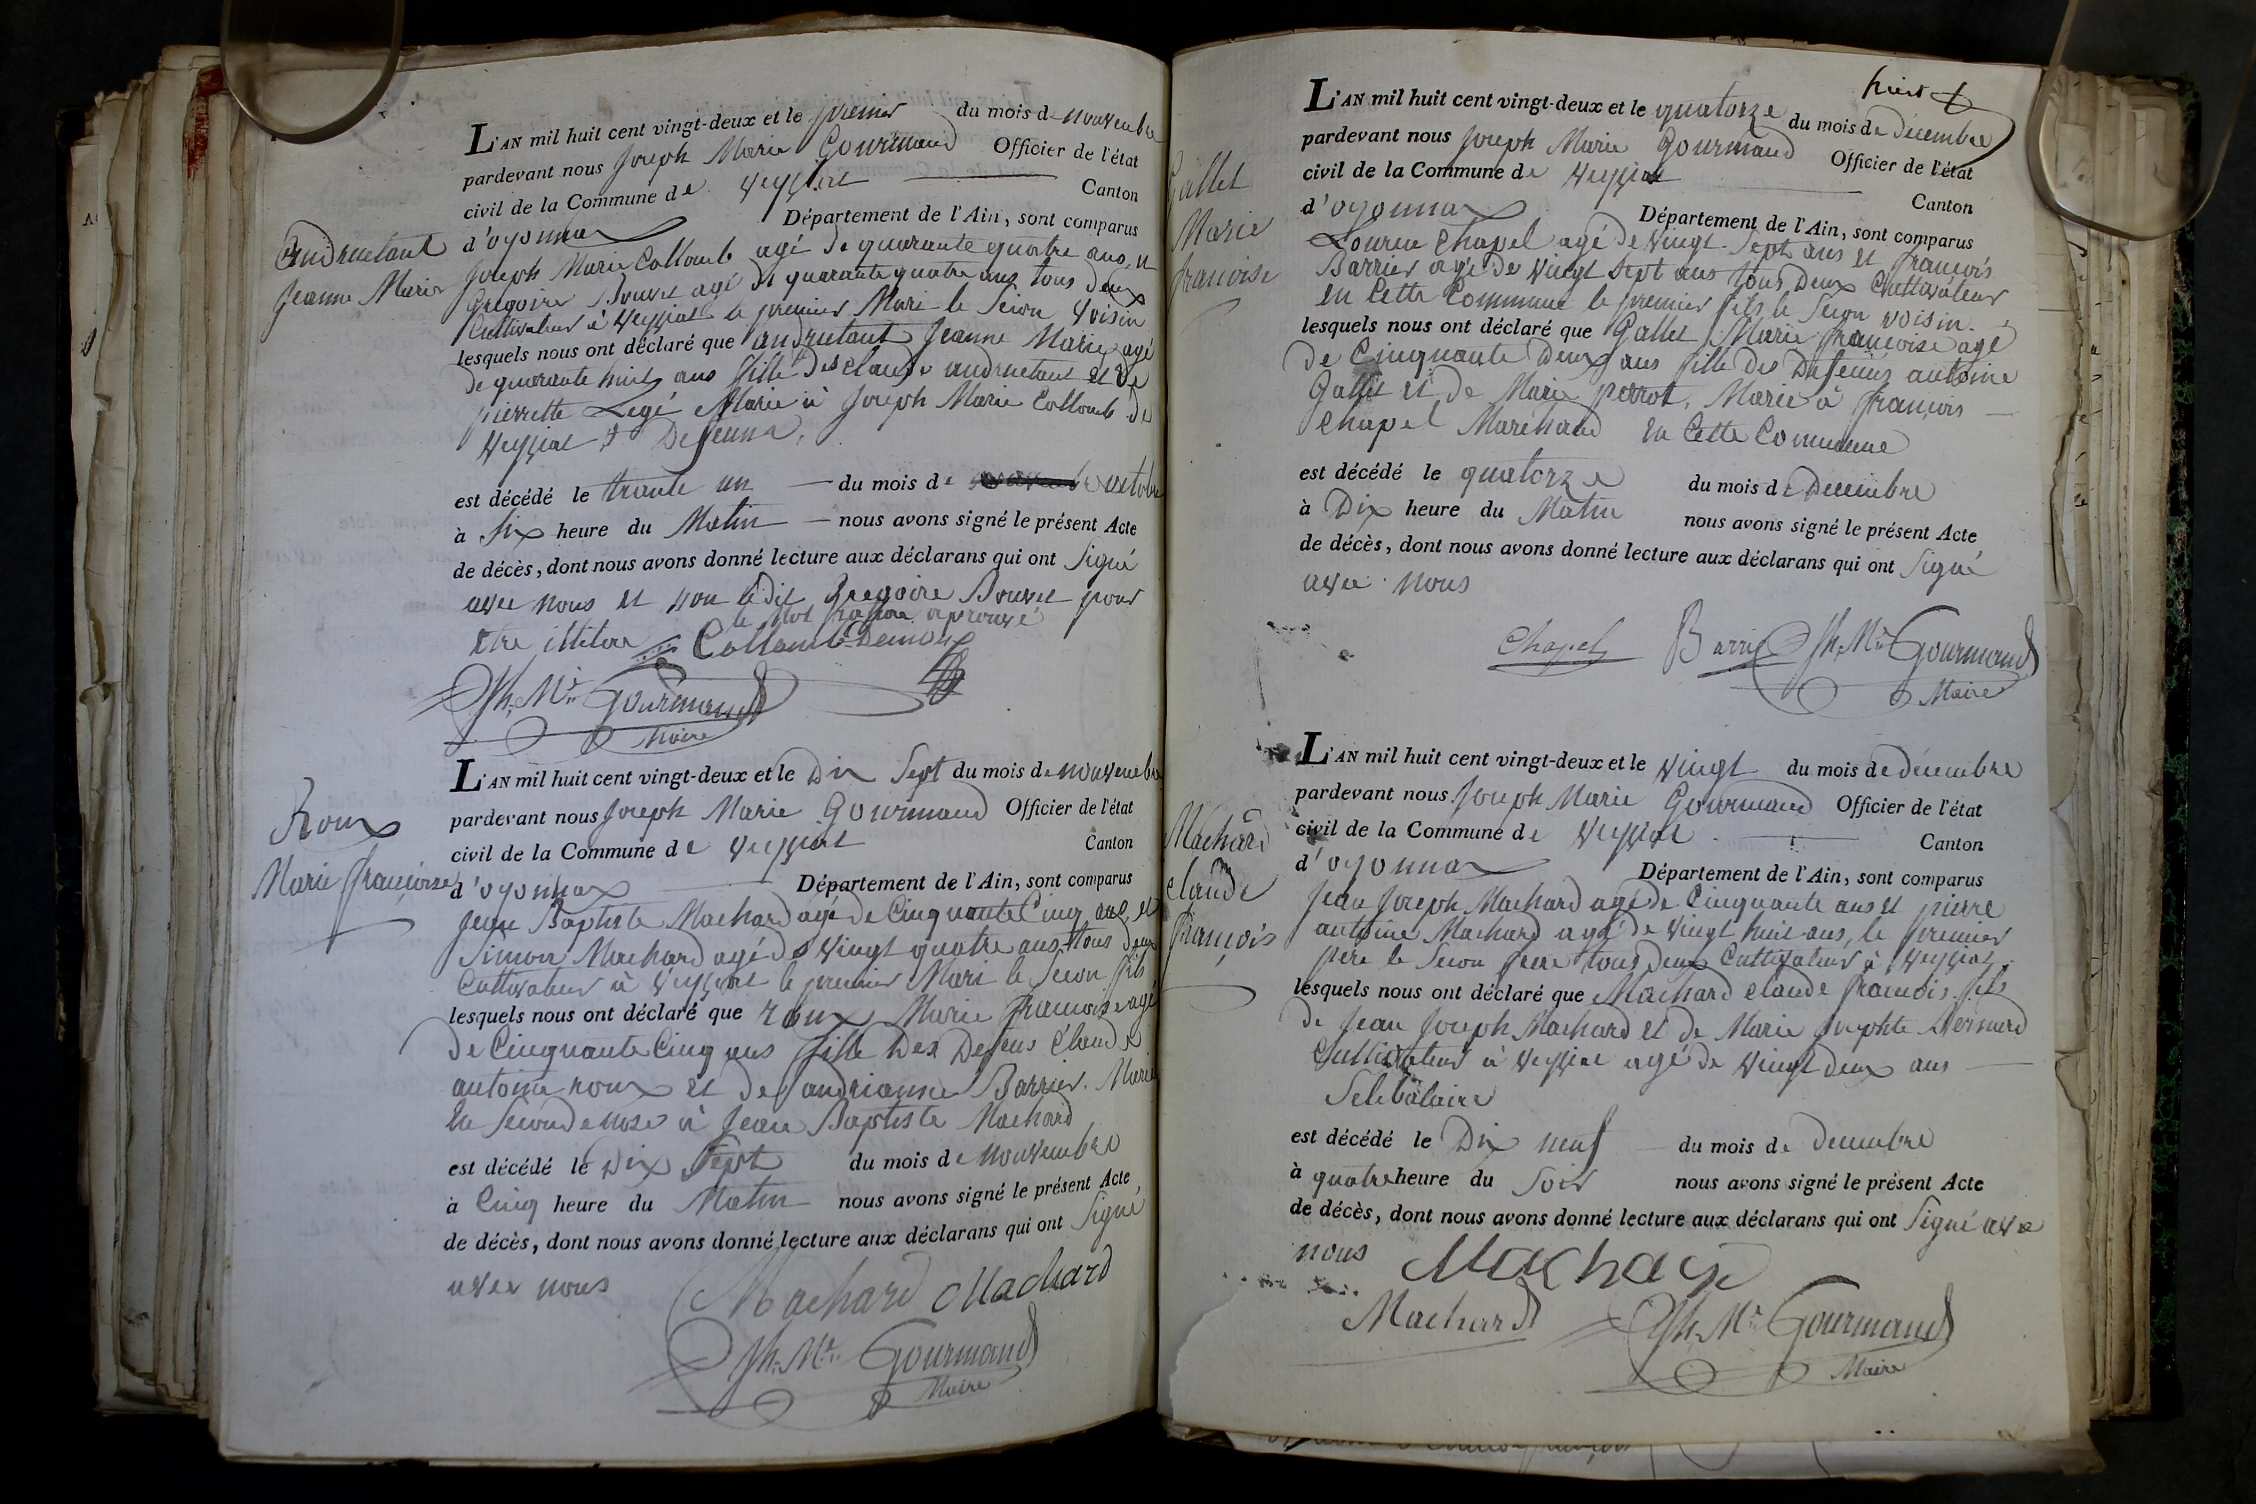 L'AN mil huit cent vingt-deux et le premier du mois de nouvembre
pardevant nous Joseph Marie Gourmand Officier de l'état
civil de la Commune de Veyziat Canton
d'oyonnax Département de l'Ain, sont comparus
Andruetant
Jeanne Marie
Joseph Marie Collomb agé de quarante quatre ans, et
Gregoire Bouvet agé de quarante quatre ans tous deux
Cultivateur à Veyziat le premier Mari le Secon Voisin
lesquels nous ont déclaré que andruetant Jeanne Marie agé
de quarante huit ans fille des claude andruetant et de
pierrette Legé Marie à Joseph Marie Collomb de
Veyziat
est décédé le trante un du mois de octobre
à Six heure du Matin nous avons signé le présent Acte
de décès, dont nous avons donné lecture aux déclarans qui ont Signé
avec nous et non ledit Gregoire Bouvet pour
le mot aprouvé
etre illitere Collomb
Jh. Mie Gourmand
Maire
L'AN mil huit cent vingt-deux et le Dix Sept du mois de nouvembre
pardevant nous Joseph Marie Gourmand Officier de l'état
civil de la Commune de Veyziat Canton
Roux
Marie françoise
d'oyonnax Département de l'Ain, sont comparus
Jean Baptiste Machard agé de Cinquante Cinq ans, et
Simon Machard agé de Vingt quatre ans tous deux
Cultivateur à Veyziat le premier Mari le Secon fils
lesquels nous ont déclaré que roux Marie francoise agé
de Cinquante Cinq ans fille Des Defeus Claude
antoine roux et de andrianne Barrier. Marie
En Seconde nose à Jean Baptiste Machard
est décédé le Dix Sept du mois de Nouvembre
à Cinq heure du Matin nous avons signé le présent Acte,
de décès, dont nous avons donné lecture aux déclarans qui ont Signé
avec nous
Machard Machard
Jh. Mie Gourmand
Maire
L'AN mil huit cent vingt-deux et le quatorze du mois de décembre
pardevant nous Joseph Marie Gourmand Officier de l'état
civil de la Commune de Veyziat Canton
d'oyonnax Département de l'Ain, sont comparus
Gallet
Marie
francoise
Chapel agé de Vingt Sept ans et françois
Barrier agé de Vingt Sept ans tous Deux Cultivateur
en Cette Commune le premier fils le Secon voisin
lesquels nous ont déclaré que Gallet Marie francoise agé
de Cinquante Deux ans fille des Defeuns antoine
Gallet et de Marie perrot, Marie à françois
Chapel Maréchand en Cette Commune
est décédé le quatorze du mois de Decembre
à Dix heure du Matin nous avons signé le présent Acte
de décès, dont nous avons donné lecture aux déclarans qui ont Signé
avec nous
Chapel Barrier Jh. Mie Gourmand
Maire
L'AN mil huit cent vingt-deux et le Vingt du mois de décembre
pardevant nous Joseph Marie Gourmand Officier de l'état
civil de la Commune de Veyziat Canton
d'oyonnax Département de l'Ain, sont comparus
Machard
claude
françois
Jean Joseph Machard agé de Cinquante ans et pierre
antoine Machard agé de Vingt huit ans, le premier
pere le Secon frere tous deux Cultivateur à Veyziat
lesquels nous ont déclaré que Machard claude francois fils
de Jean Joseph Machard et de Marie Josephte Bernard
Cultivateur à Veyziat agé de Vingt deux ans
Selibataire
est décédé le Dix neuf du mois de decembre
à quatre heure du Soir nous avons signé le présent Acte
de décès, dont nous avons donné lecture aux déclarans qui ont Signé avec
nous Machard
Machard Jh. Mie Gourmand
Maire